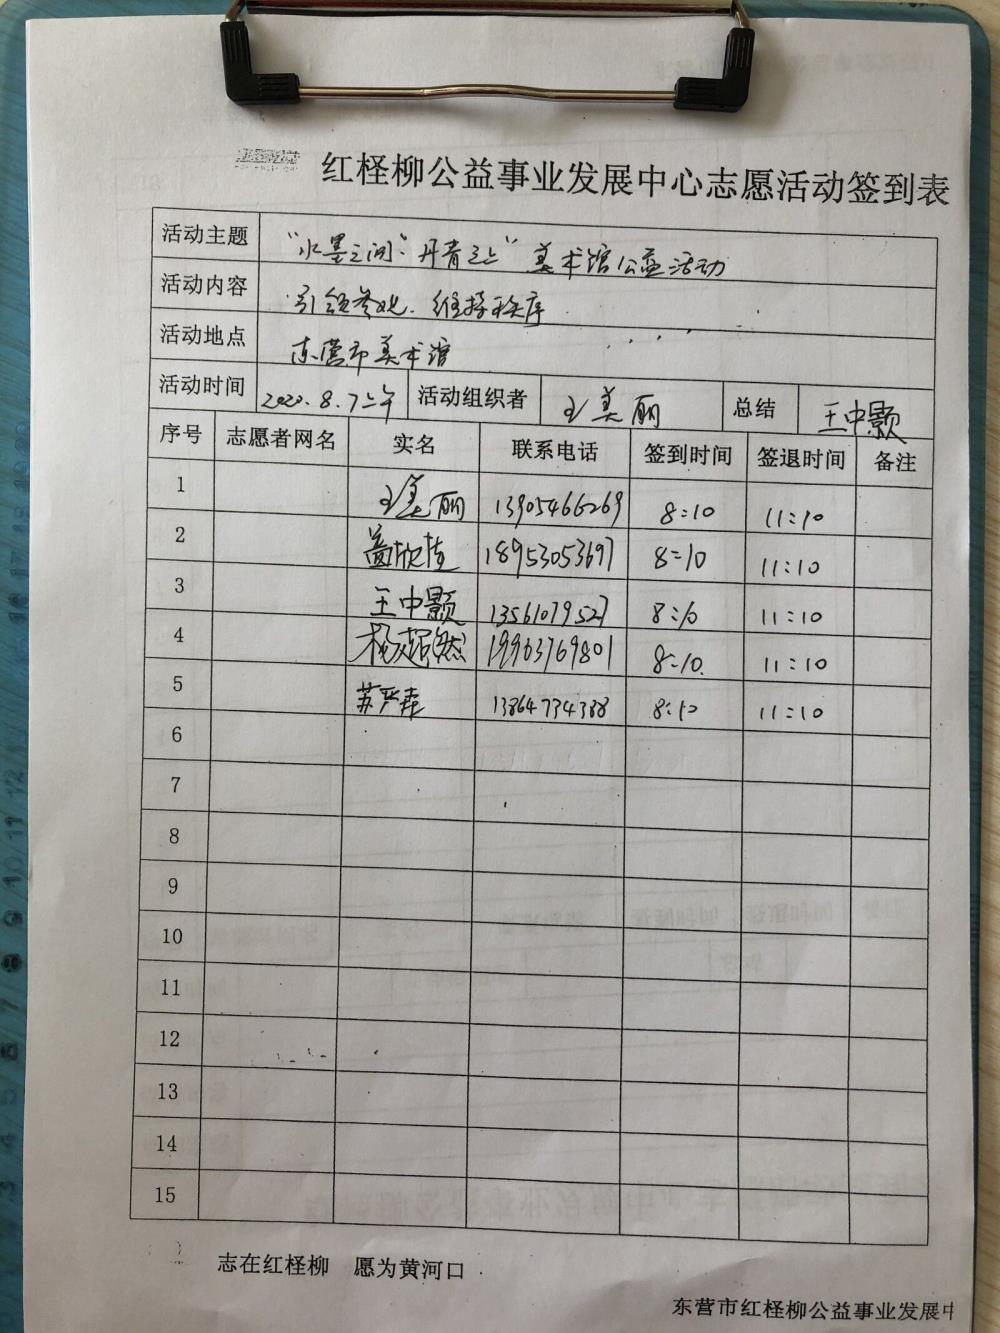 红柽柳公益事业发展中心志愿活动签到表
活动主题 "水墨之间、丹青之上" 美术馆公益活动
活动内容 引领参观、维持秩序
活动地点 东营市美术馆
活动时间 2020.8.7上午 活动组织者 王美丽 总结 王中颢
序号 志愿者网名 实名 联系电话 签到时间 签退时间 备注
1 王美丽 13905466269 8:10 11:10
2 18953053697 8:10 11:10
3 王中颢 13561079527 8:10 11:10
4 杨超然 19963769801 8:10 11:10
5 苏严 13864734388 8:10 11:10
6
7
8
9
10
11
12
13
14
15
志在红柽柳 愿为黄河口
东营市红柽柳公益事业发展中